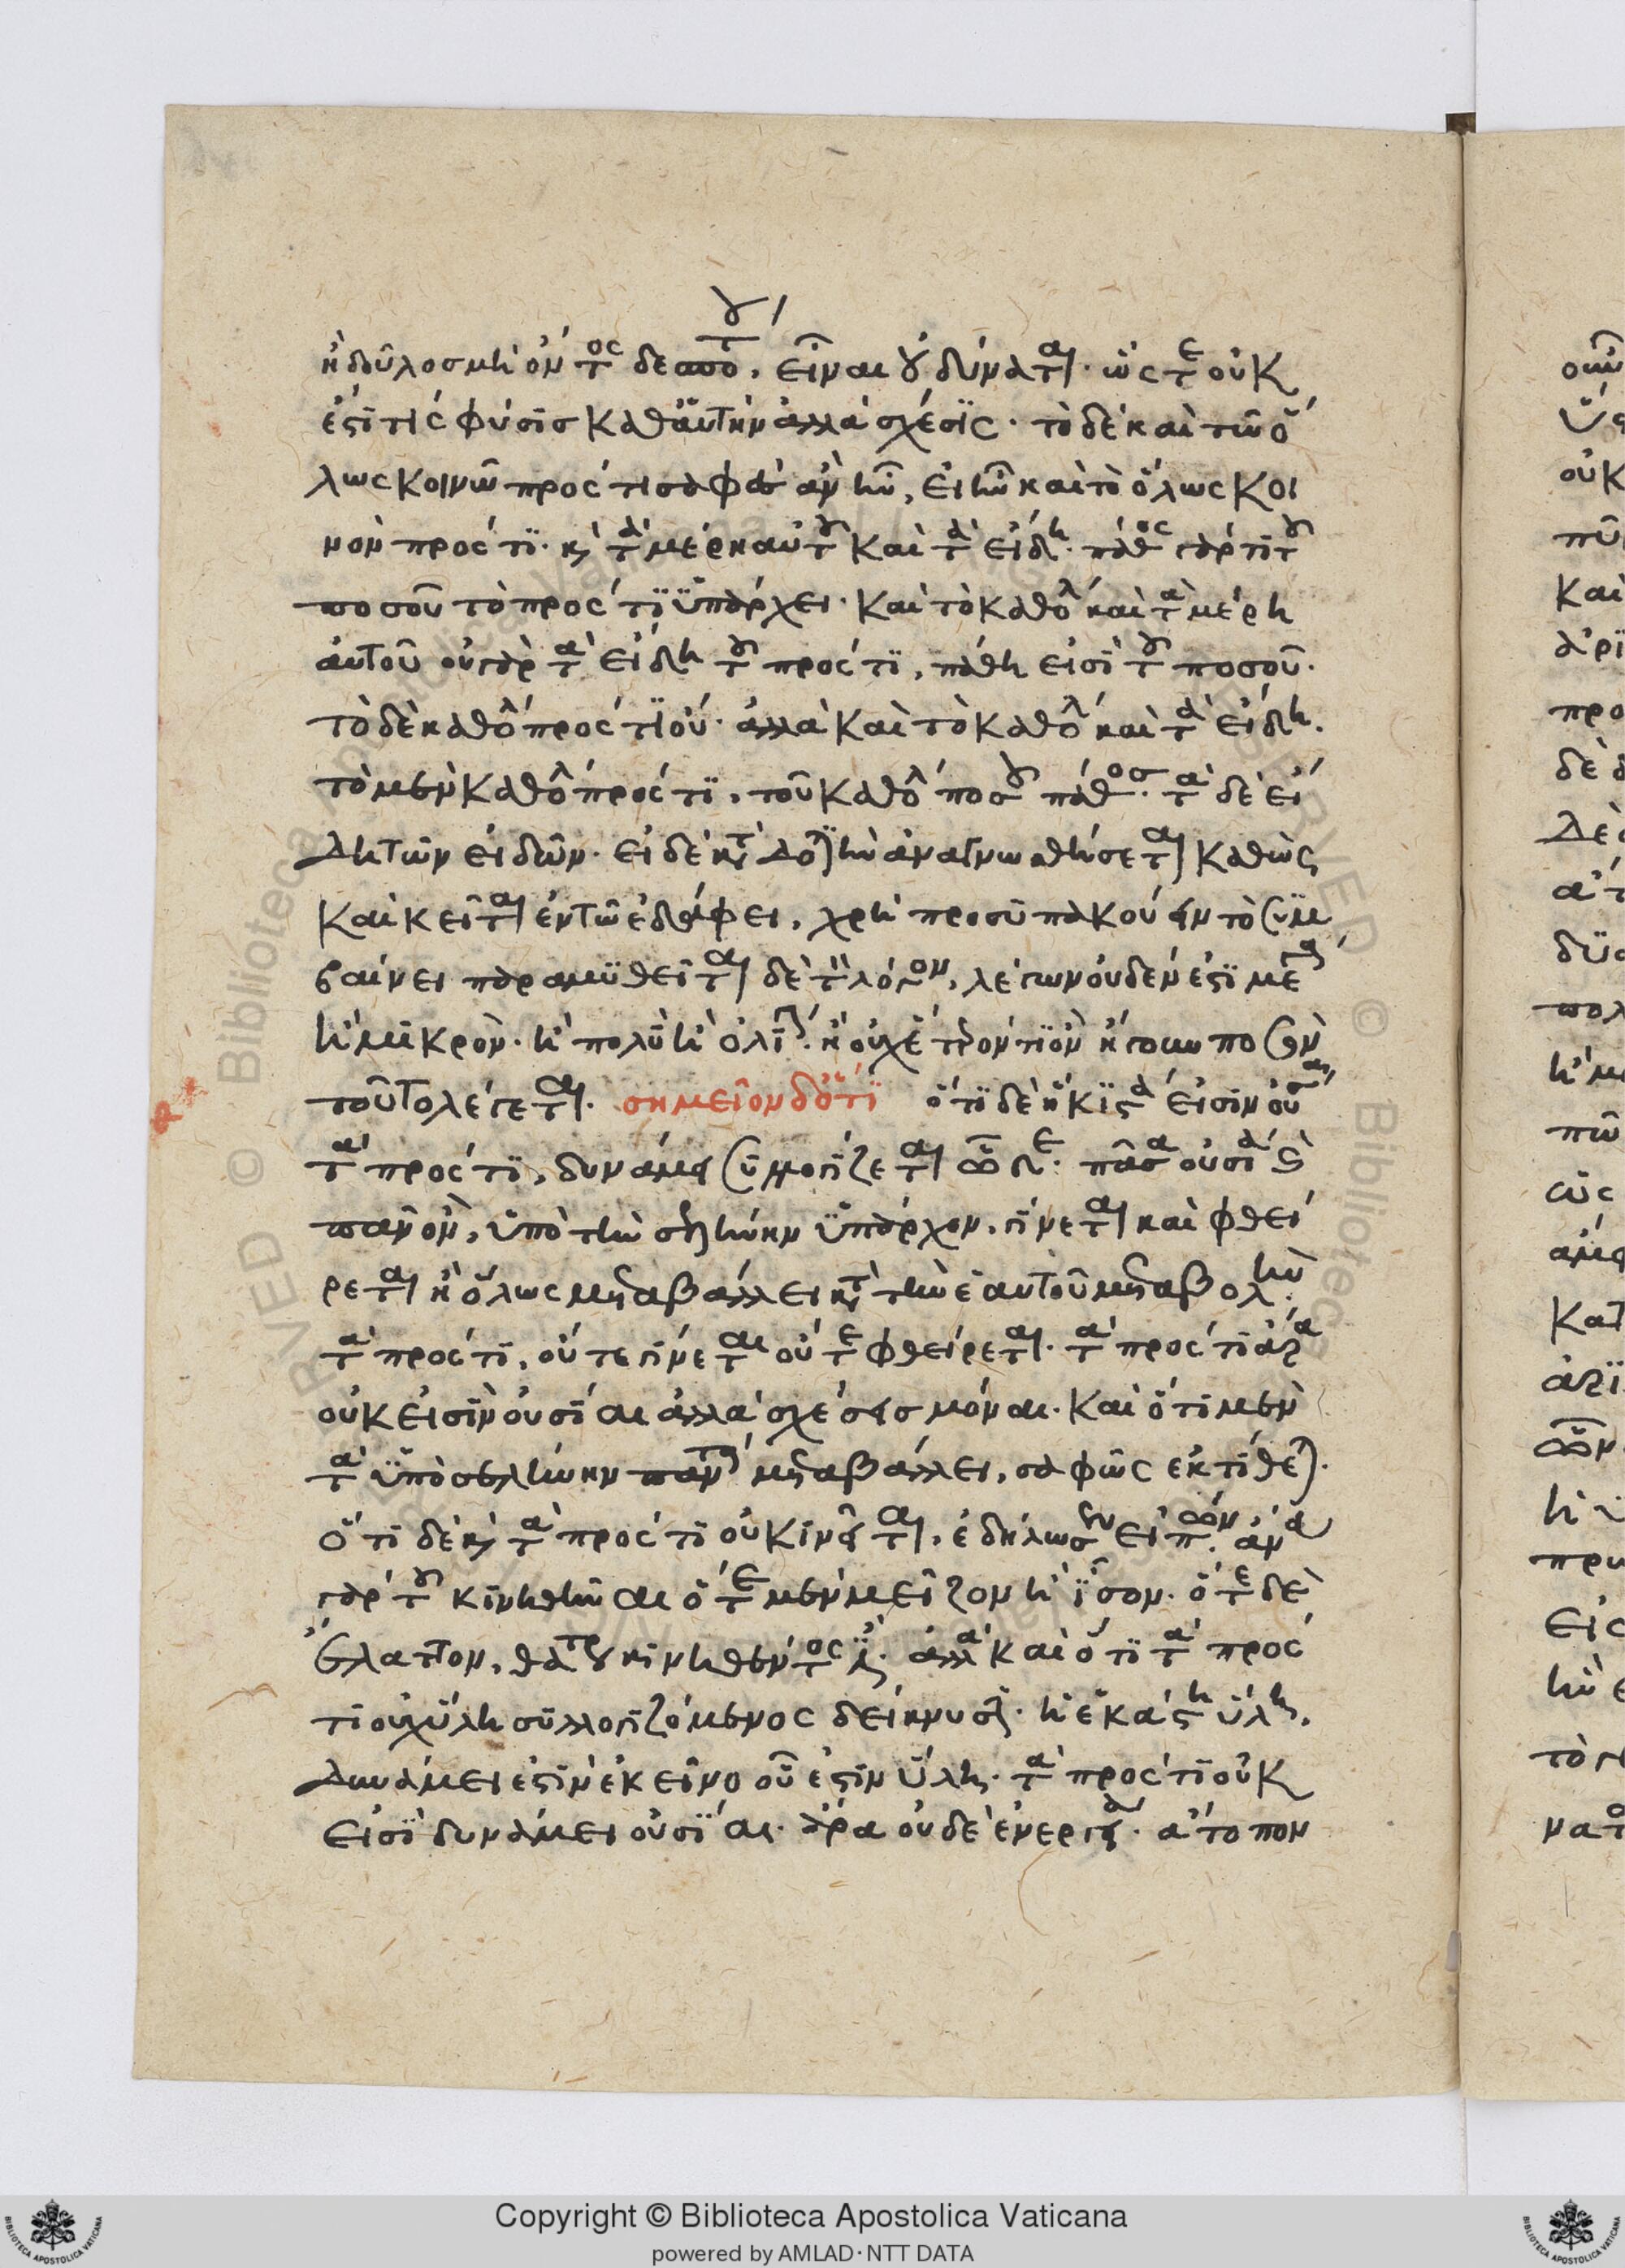 ἢ δοῦλος μὴ ὄντος δεσπότου, εἶναι οὐ δύναται· ὥστε οὐκ
ἔστι τίς φύσις καθ' αὑτὴν ἀλλὰ σχέσις· τὸ δὲ καὶ τῶ ὅ
λως κοινῶ πρός τι σαφὲς ἂν ἦν, εἰ ἦν καὶ τὸ ὅλως κοι
νὸν πρός τι· καὶ τὰ μέρη αὐτοῦ καὶ τὰ εἴδη· πάθος γάρ τι τοῦ
ποσοῦ τὸ πρός τι ὑπάρχει· καὶ τὸ καθόλου καὶ τὰ μέρη
αὐτοῦ οὐ γὰρ τὰ εἴδη τοῦ πρός τι, πάθη εἰσὶ τοῦ ποσοῦ·
τὸ δὲ καθόλου πρός τι οὔ· ἀλλὰ καὶ τὸ καθόλου καὶ τὰ εἴδη·
τὸ μὲν καθόλου πρός τι, τοῦ καθόλου ποσοῦ πάθος· τὰ δὲ εἴ
δη τῶν εἰδῶν· εἰ δὲ κατὰ ἀναγνωσθήσεται καθὼς
καὶ κεῖται ἐν τῶ ἐδάφει, χρὴ προσυπακούειν τὸ συμ
βαίνει παραμυθεῖται δὲ τὸν λόγον, λέγων οὐδέν ἐστι μέγα
ἢ μικρόν· ἢ πολὺ ἢ ὀλίγον· ἢ οὐχ ἕτερόν τι ὂν ἤγουν ποσὸν
τοῦτο λέγεται· σημεῖον δ' ὅτι ὅτι δὲ ἥκιστα εἰσὶν οὐσίαι
τὰ πρός τι, δυνάμει συλλογίζεται οὕτω δέ· πᾶσα οὐσία καὶ
πᾶν ὂν, ὑπὸ τὴν σελήνην ὑπάρχον, γίνεται καὶ φθεί
ρεται ἢ ὅλως μεταβάλλει κατὰ τὴν ἑαυτοῦ μεταβολήν·
τὰ πρός τι, οὔτε γίνεται οὔτε φθείρεται· τὰ πρός τι ἄρα
οὐκ εἰσὶν οὐσίαι ἀλλὰ σχέσεις μόναι· καὶ ὅτι μὲν
τὰ ὑπὸ σελήνην πάντα μεταβάλλει, σαφῶς ἐκτίθεται·
ὅτι δὲ καὶ τὰ πρός τι οὐ κινεῖται, ἐδήλωσεν εἰπών· ἄνευ
γὰρ τοῦ κινηθῆναι ὁτὲ μὲν μεῖζον ἢ ἴσον· ὁτὲ δὲ
ἔλαττον, θατέρου κινηθέντος ἐστίν· ἀλλὰ καὶ ὅτι τὰ πρός
τι οὐχ ὕλη συλλογιζόμενος δείκνυσι· ἡ ἑκάστη ὕλη,
δυνάμει ἐστὶν ἐκεῖνο οὗ ἐστιν ὕλη· τὰ πρός τι οὐκ
εἰσὶ δυνάμει οὐσίαι· ἄρα οὐδὲ ἐνεργείᾳ· ἄτοπον